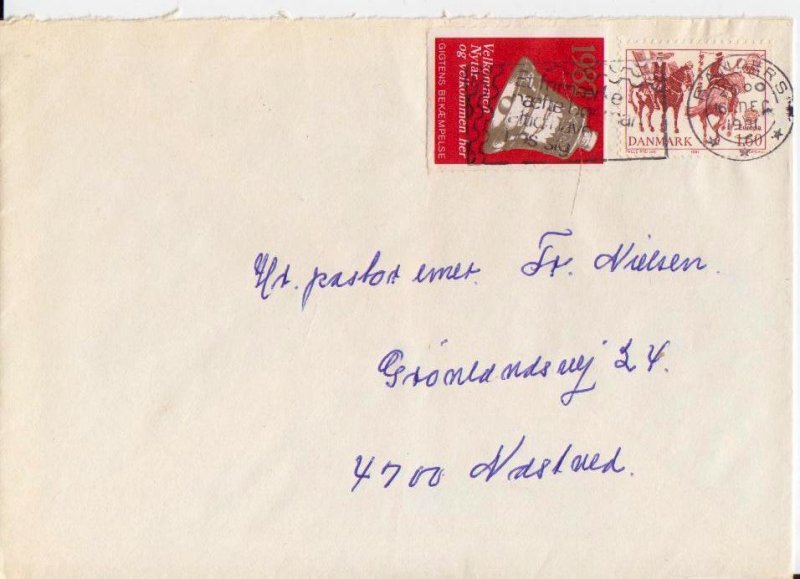 1982
Velkommen
Nytår
og velkommen her
GIGTENS BEKÆMPELSE
DANMARK 1.60
Europa
1981
Hr. pastor emer. Fr. Nielsen.
Grönlandsvej 24.
4700 Næstved.